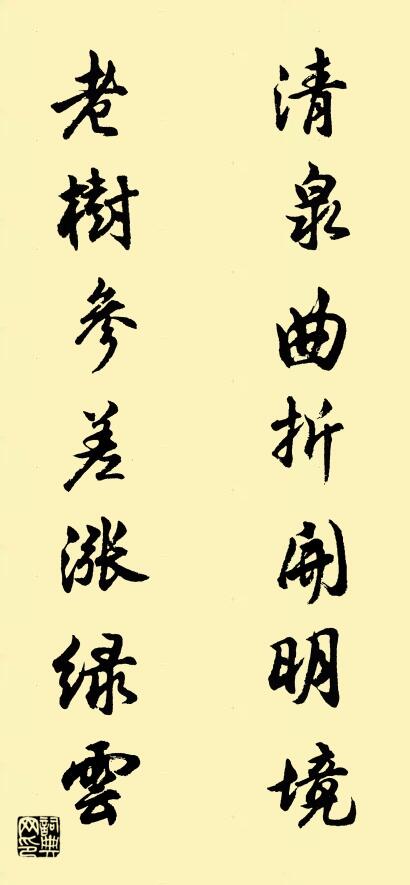 清泉曲折開明境
老樹參差漲綠雲
詞典網印